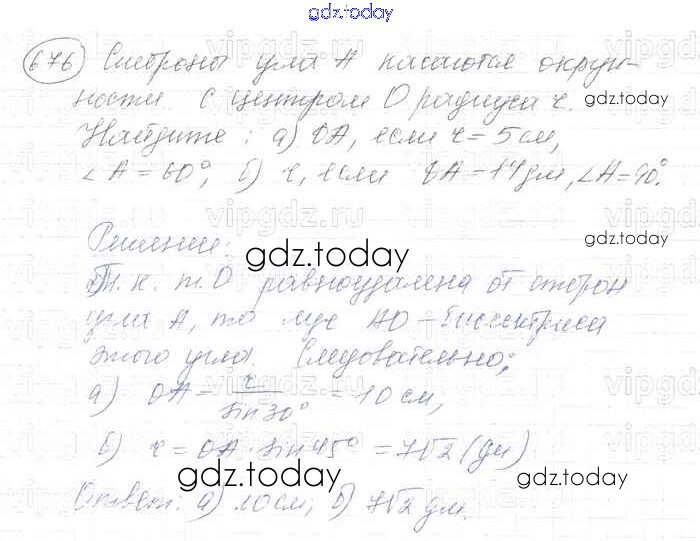 gdz.today
676 Стороны угла А касаются окруж-
ности с центром О радиуса r.
Найдите: а) ОА, если r = 5 см,
∠A = 60°; б) r, если ОА = 14 дм, ∠A = 90°.
Решение:
Т. к. т. О равноудалена от сторон
угла А, то луч АО – биссектриса
этого угла. Следовательно,
а) ОА = r / sin 30° = 10 см;
б) r = ОА · sin 45° = 7√2 (дм)
Ответ: а) 10 см; б) 7√2 дм.
gdz.today
gdz.today
gdz.today
gdz.today
gdz.today
gdz.today
gdz.today
vipgdz.ru